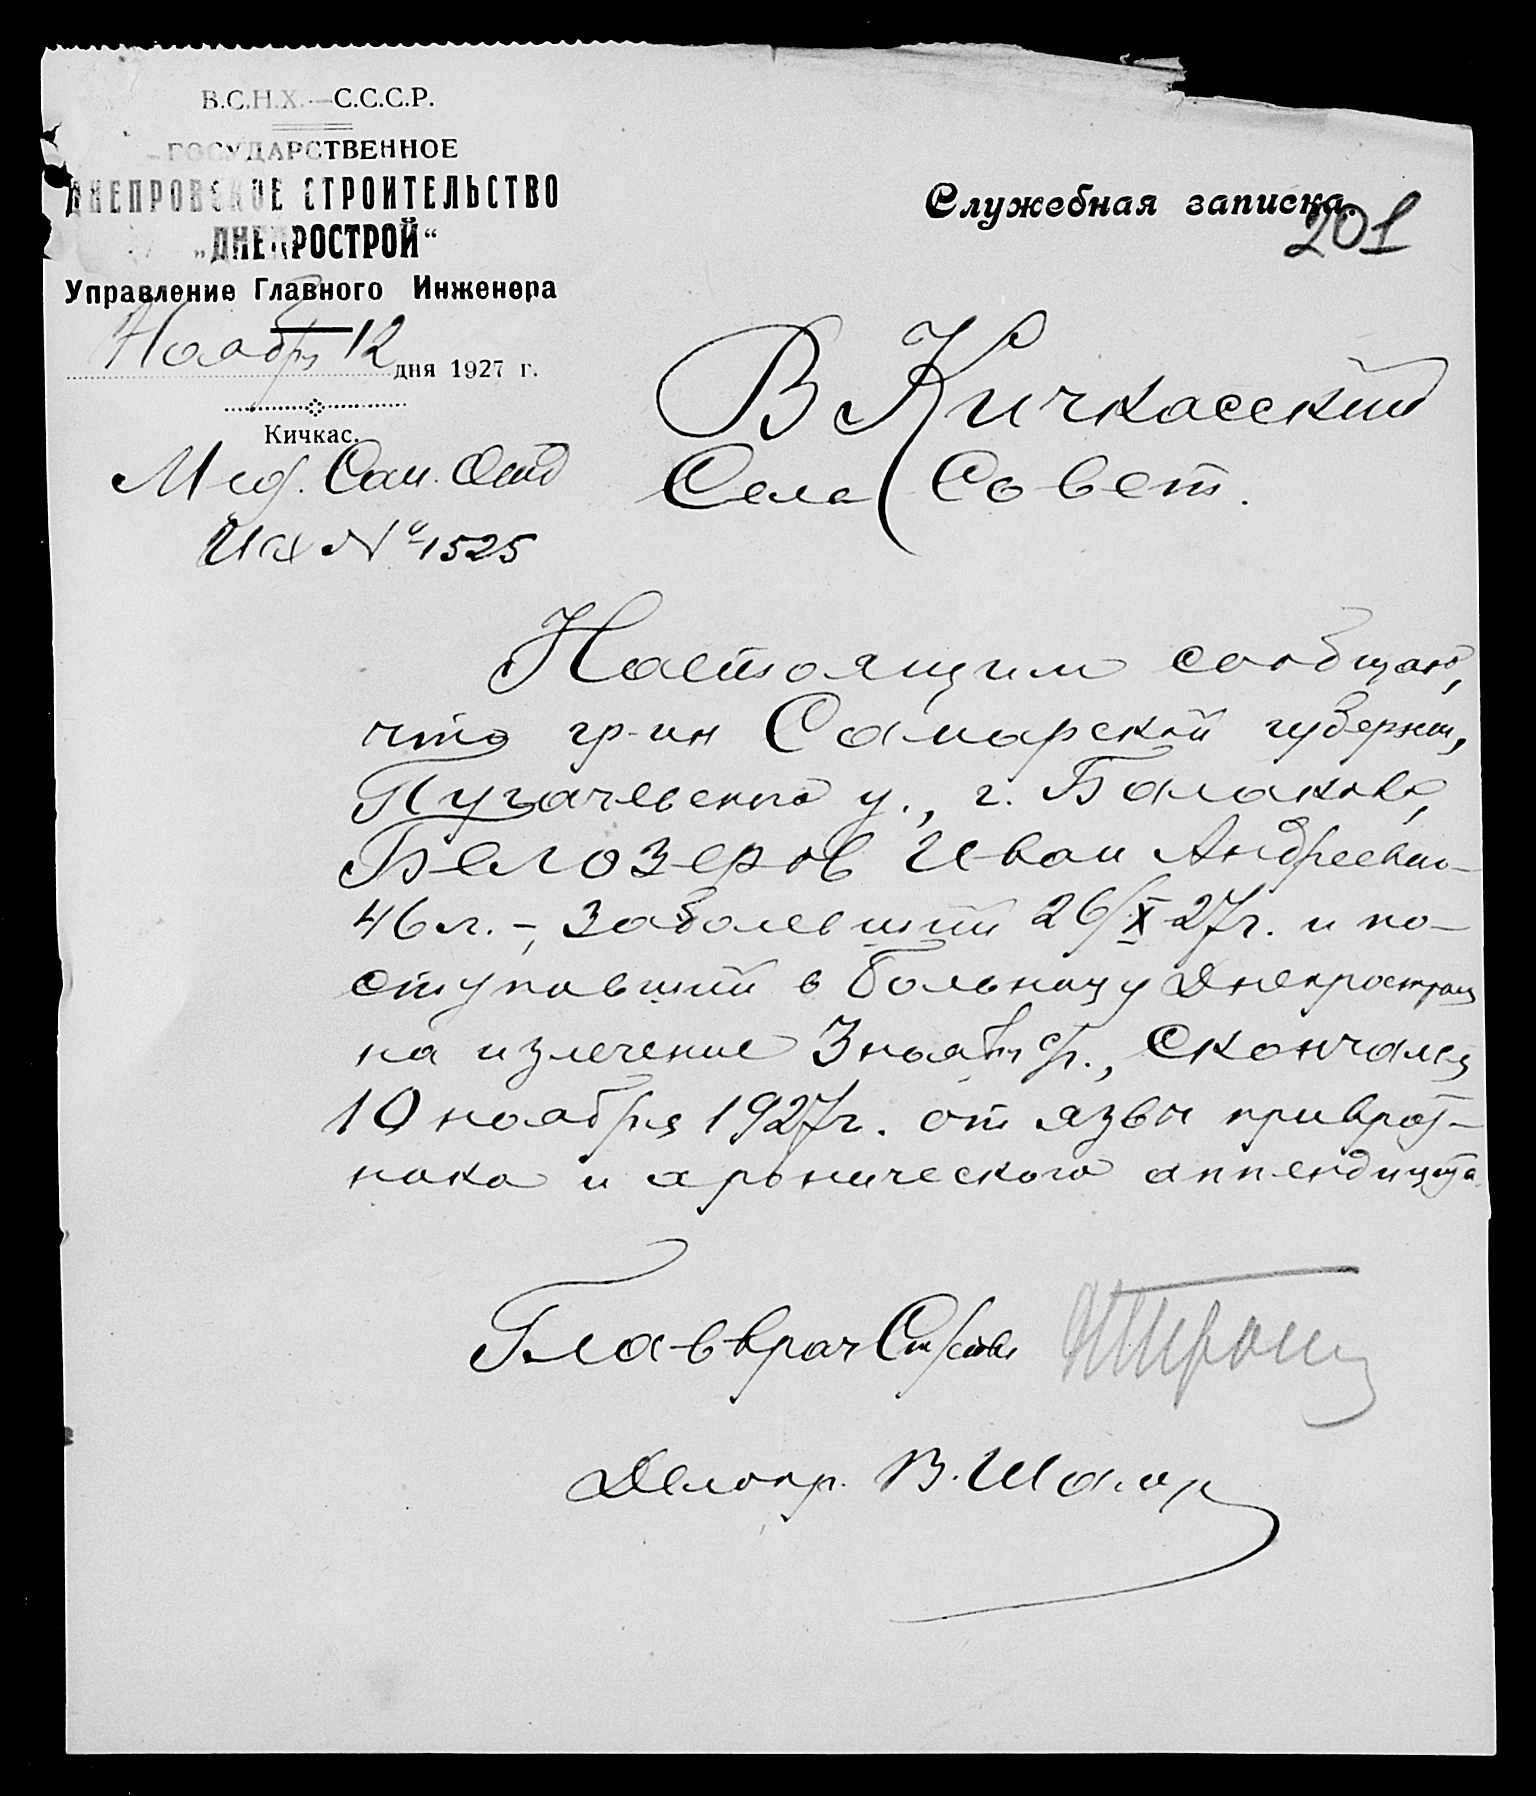 В.С.Н.Х.—С.С.С.Р.
ГОСУДАРСТВЕННОЕ
ДНЕПРОВСКОЕ СТРОИТЕЛЬСТВО
„ДНЕПРОСТРОЙ“
Управление Главного Инженера
Ноября 12 дня 1927 г.
Кичкас.
Мед. Сан. Отд
Исх № 1525
Служебная записка.
201
В Кичкасский
Село Совет.
Настоящим сообщаю,
что гр-ин Самарской губернии,
Пугачевского у., г. Балаково,
Белозеров Иван Андреевич
46 л. –, заболевший 26/X 27г. и по–
ступивший в Больницу Днепростроя
на излечение 3 ноября с/г., скончался
10 ноября 1927г. от язвы приврат–
ника и хронического аппендицита
Главврач Стр/ства
Делопр. В. Шамр